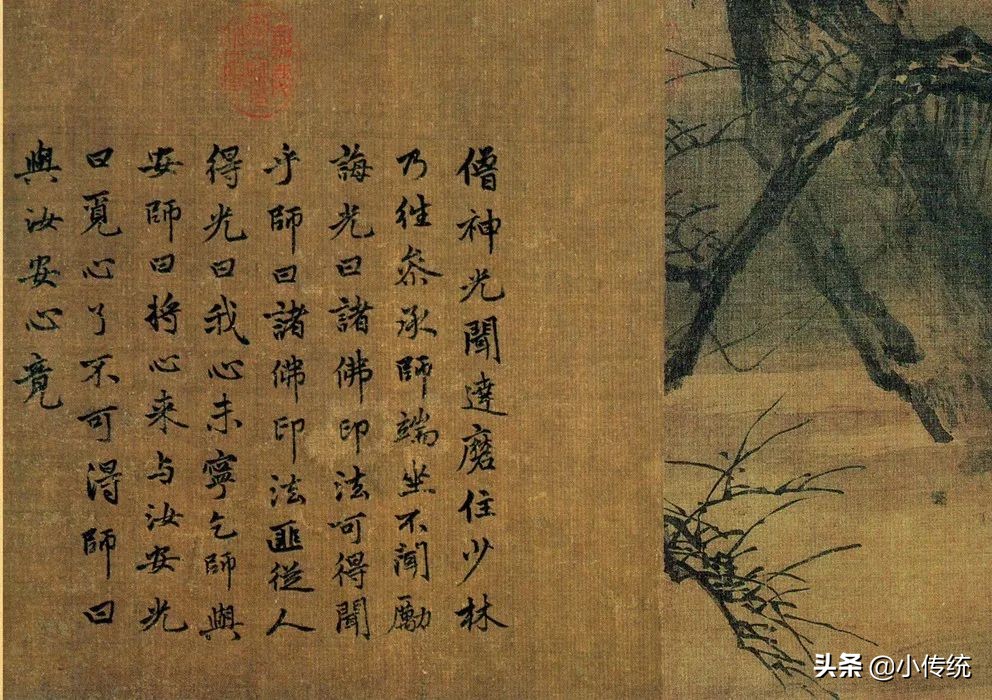 僧神光聞達磨住少林
乃往叅承師端坐不聞勵
誨光曰諸佛印法呵得聞
乎師曰諸佛印法匪從人
得光曰我心未寧乞師與
安師曰将心来与汝安光
曰覓心了不可得師曰
與汝安心竟
头条 @小传统